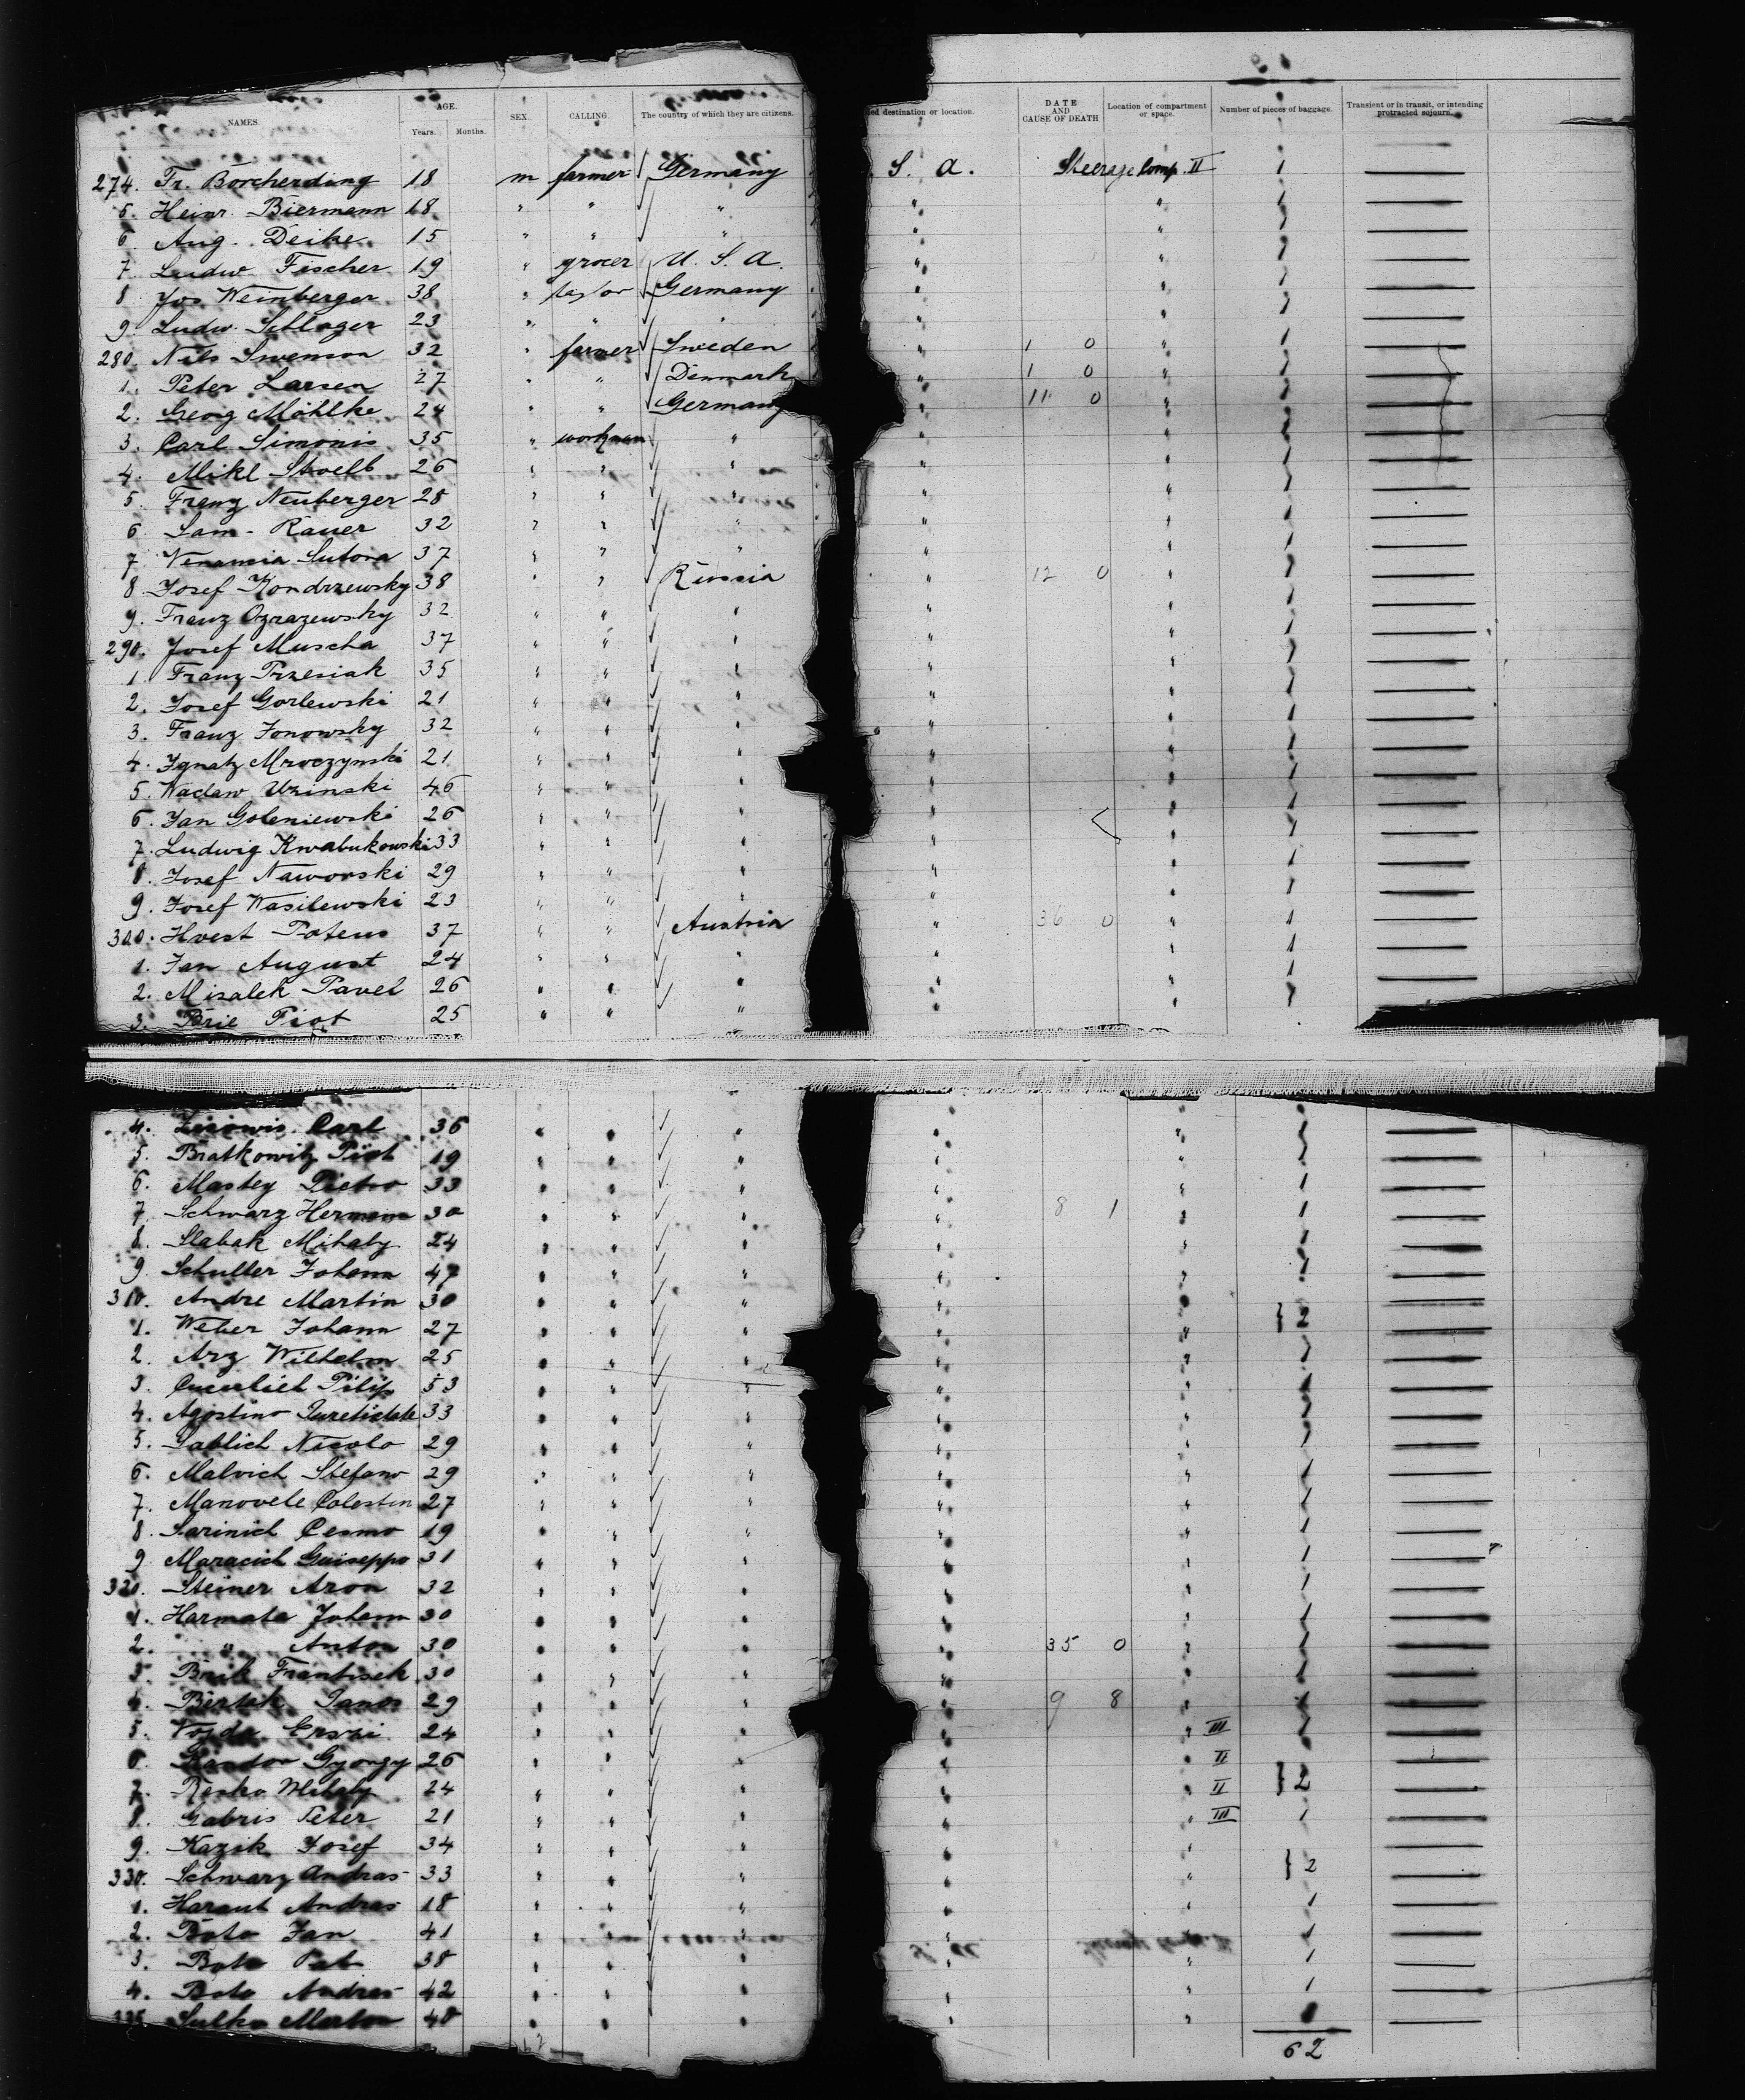 NAMES. AGE. Years. Months. SEX. CALLING. The country of which they are citizens. destination or location. DATE AND CAUSE OF DEATH Location of compartment or space. Number of pieces of baggage. Transient or in transit, or intending protracted sojourn.
274. Fr. Borcherding 18 m farmer Germany S. A. Steerage Comp. II 1
5. Heinr. Biermann 18 " " " " " 1
6. Aug. Deike 15 " " " " " 1
7. Ludw. Fischer 19 " grocer U. S. A. " " 1
8. Jos Weinberger 38 " taylor Germany " " 1
9. Ludw. Schlager 23 " " " " " 1
280. Nils Swenson 32 " farmer Sweden " 1 0 " 1
1. Peter Larsen 27 " " Denmark " 1 0 " 1
2. Georg Möhlke 24 " " Germany " 11 0 " 1
3. Carl Simonis 35 " workman " " " 1
4. Mikl 26 " " " " " 1
5. Franz Neuberger 28 " " " " " 1
6. Sam. Rauer 32 " " " " " 1
7. Sutora 37 " " " " " 1
8. Josef Kondrzewsky 38 " " Russia " 12 0 " 1
9. Franz Ozrazewsky 32 " " " " " 1
290. Josef Muscha 37 " " " " " 1
1. Franz Przesiak 35 " " " " " 1
2. Josef Gorlewski 21 " " " " " 1
3. Franz Jonowsky 32 " " " " " 1
4. Ignatz Mroczynski 21 " " " " " 1
5. Waclaw Uzinski 46 " " " " " 1
6. Jan Goleniewski 26 " " " " " 1
7. Ludwig Kwabukowski 33 " " " " " 1
8. Josef Naworski 29 " " " " " 1
9. Josef Wasilewski 23 " " " " " 1
300. Hvest Potens 37 " " Austria " 36 0 " 1
1. Jan August 24 " " " " " 1
2. Misalek Pavel 26 " " " " " 1
3. Brie Piot 25 " " " " " 1
4. Carl 36 " " " " " 1
5. Bratkowitz Piot 19 " " " " " 1
6. Mastey Pietro 33 " " " " " 1
7. Schwarz Hermann 30 " " " " 8 1 " 1
8. Slabak Mihaly 24 " " " " "
9. Schuller Johann 47 " " " " " 1
310. Andre Martin 30 " " " " "
1. Weber Johann 27 " " " " " } 2
2. Arz Wilhelm 25 " " " " " 1
3. Pilip 53 " " " " " 1
4. Agostino 33 " " " " " 1
5. Sablich Nicolo 29 " " " " " 1
6. Malvich Stefano 29 " " " " " 1
7. Manovele Colestin 27 " " " " " 1
8. Sarinich Cesmo 19 " " " " " 1
9. Maracich Guiseppo 31 " " " " " 1
320. Steiner Aron 32 " " " " " 1
1. Harmata Johann 30 " " " " " 1
2. " Anton 30 " " " " 35 0 " 1
3. Brik Frantisek 30 " " " " " 1
4. Janos 29 " " " " 9 8 " 1
5. Vojda 24 " " " " " III 1
6. Gyorgy 26 " " " " " II
7. Mihaly 24 " " " " " II } 2
8. Gabris Peter 21 " " " " " III 1
9. Kazik Josef 34 " " " "
330. Schwarz Andras 33 " " " " " } 2
1. Haraut Andras 18 " " " " 1
2. Boto Jan 41 " " " " 1
3. Boto 38 " " " " " 1
4. Boto Andras 42 " " " " " 1
335. Sulka 48 " " " " "
62